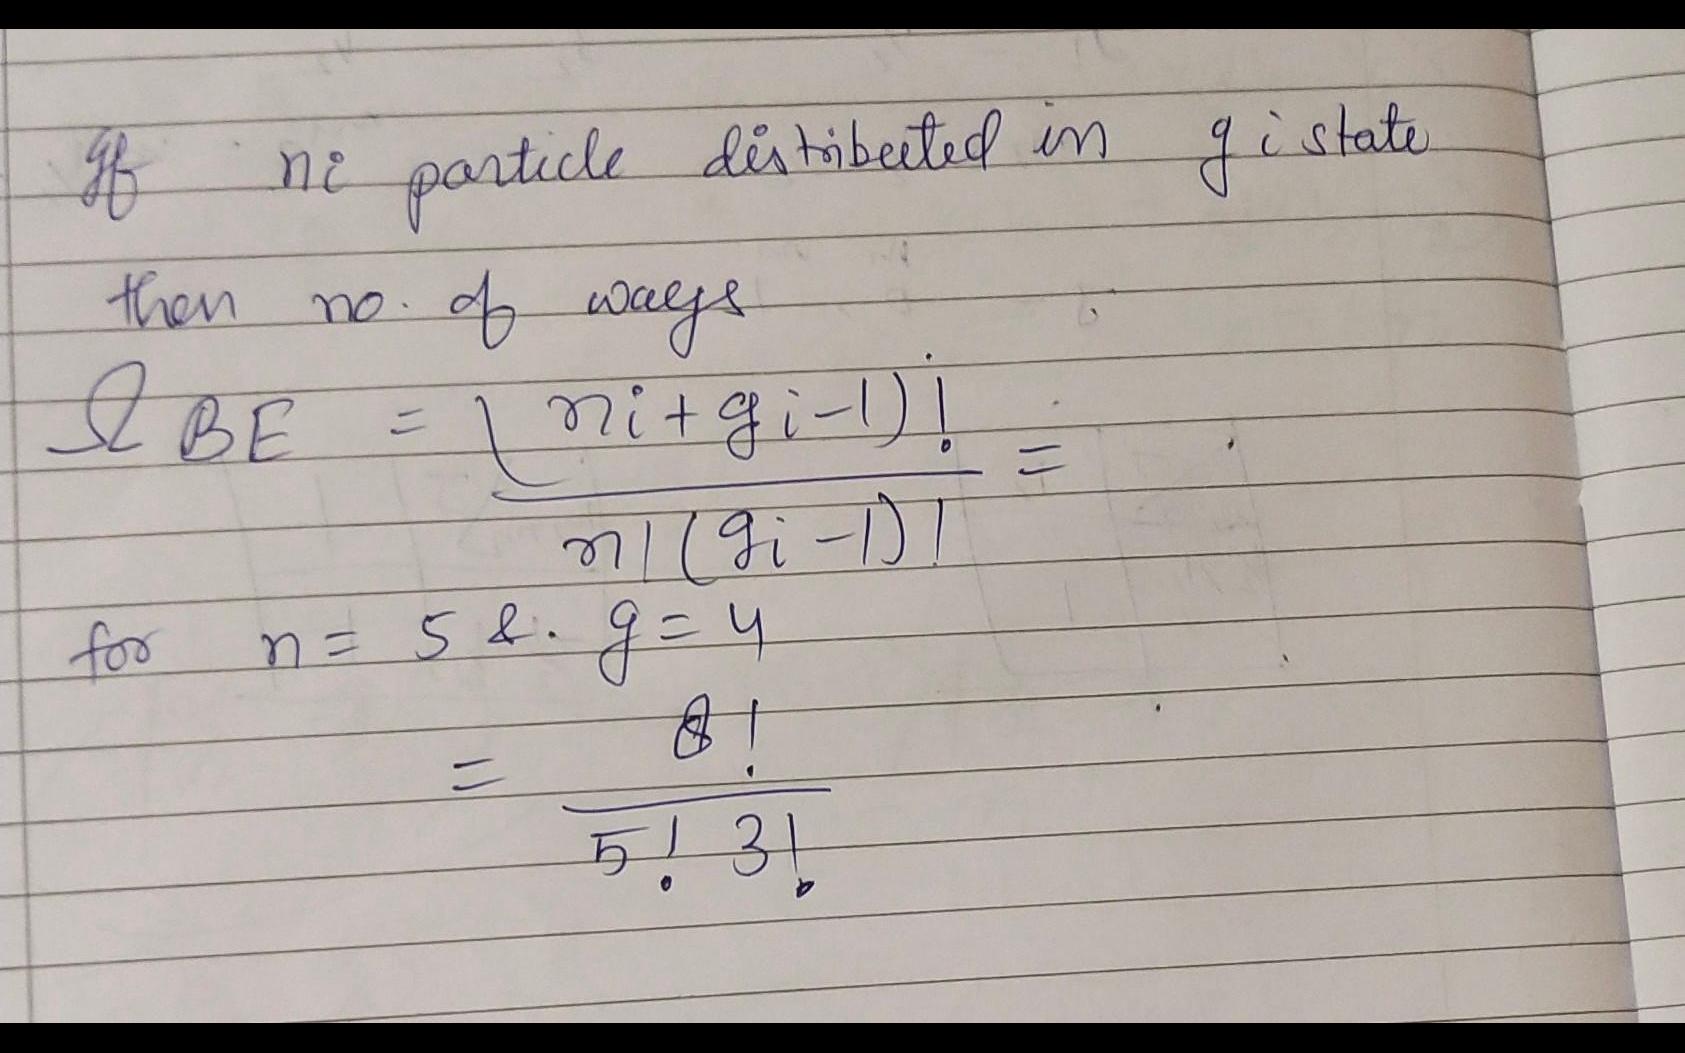 If ni particle distributed in gi state
then no. of ways
Ω BE = (ni + gi - 1)! =
n! (gi - 1)!
for n = 5 &. g = 4
= 8!
5! 3!